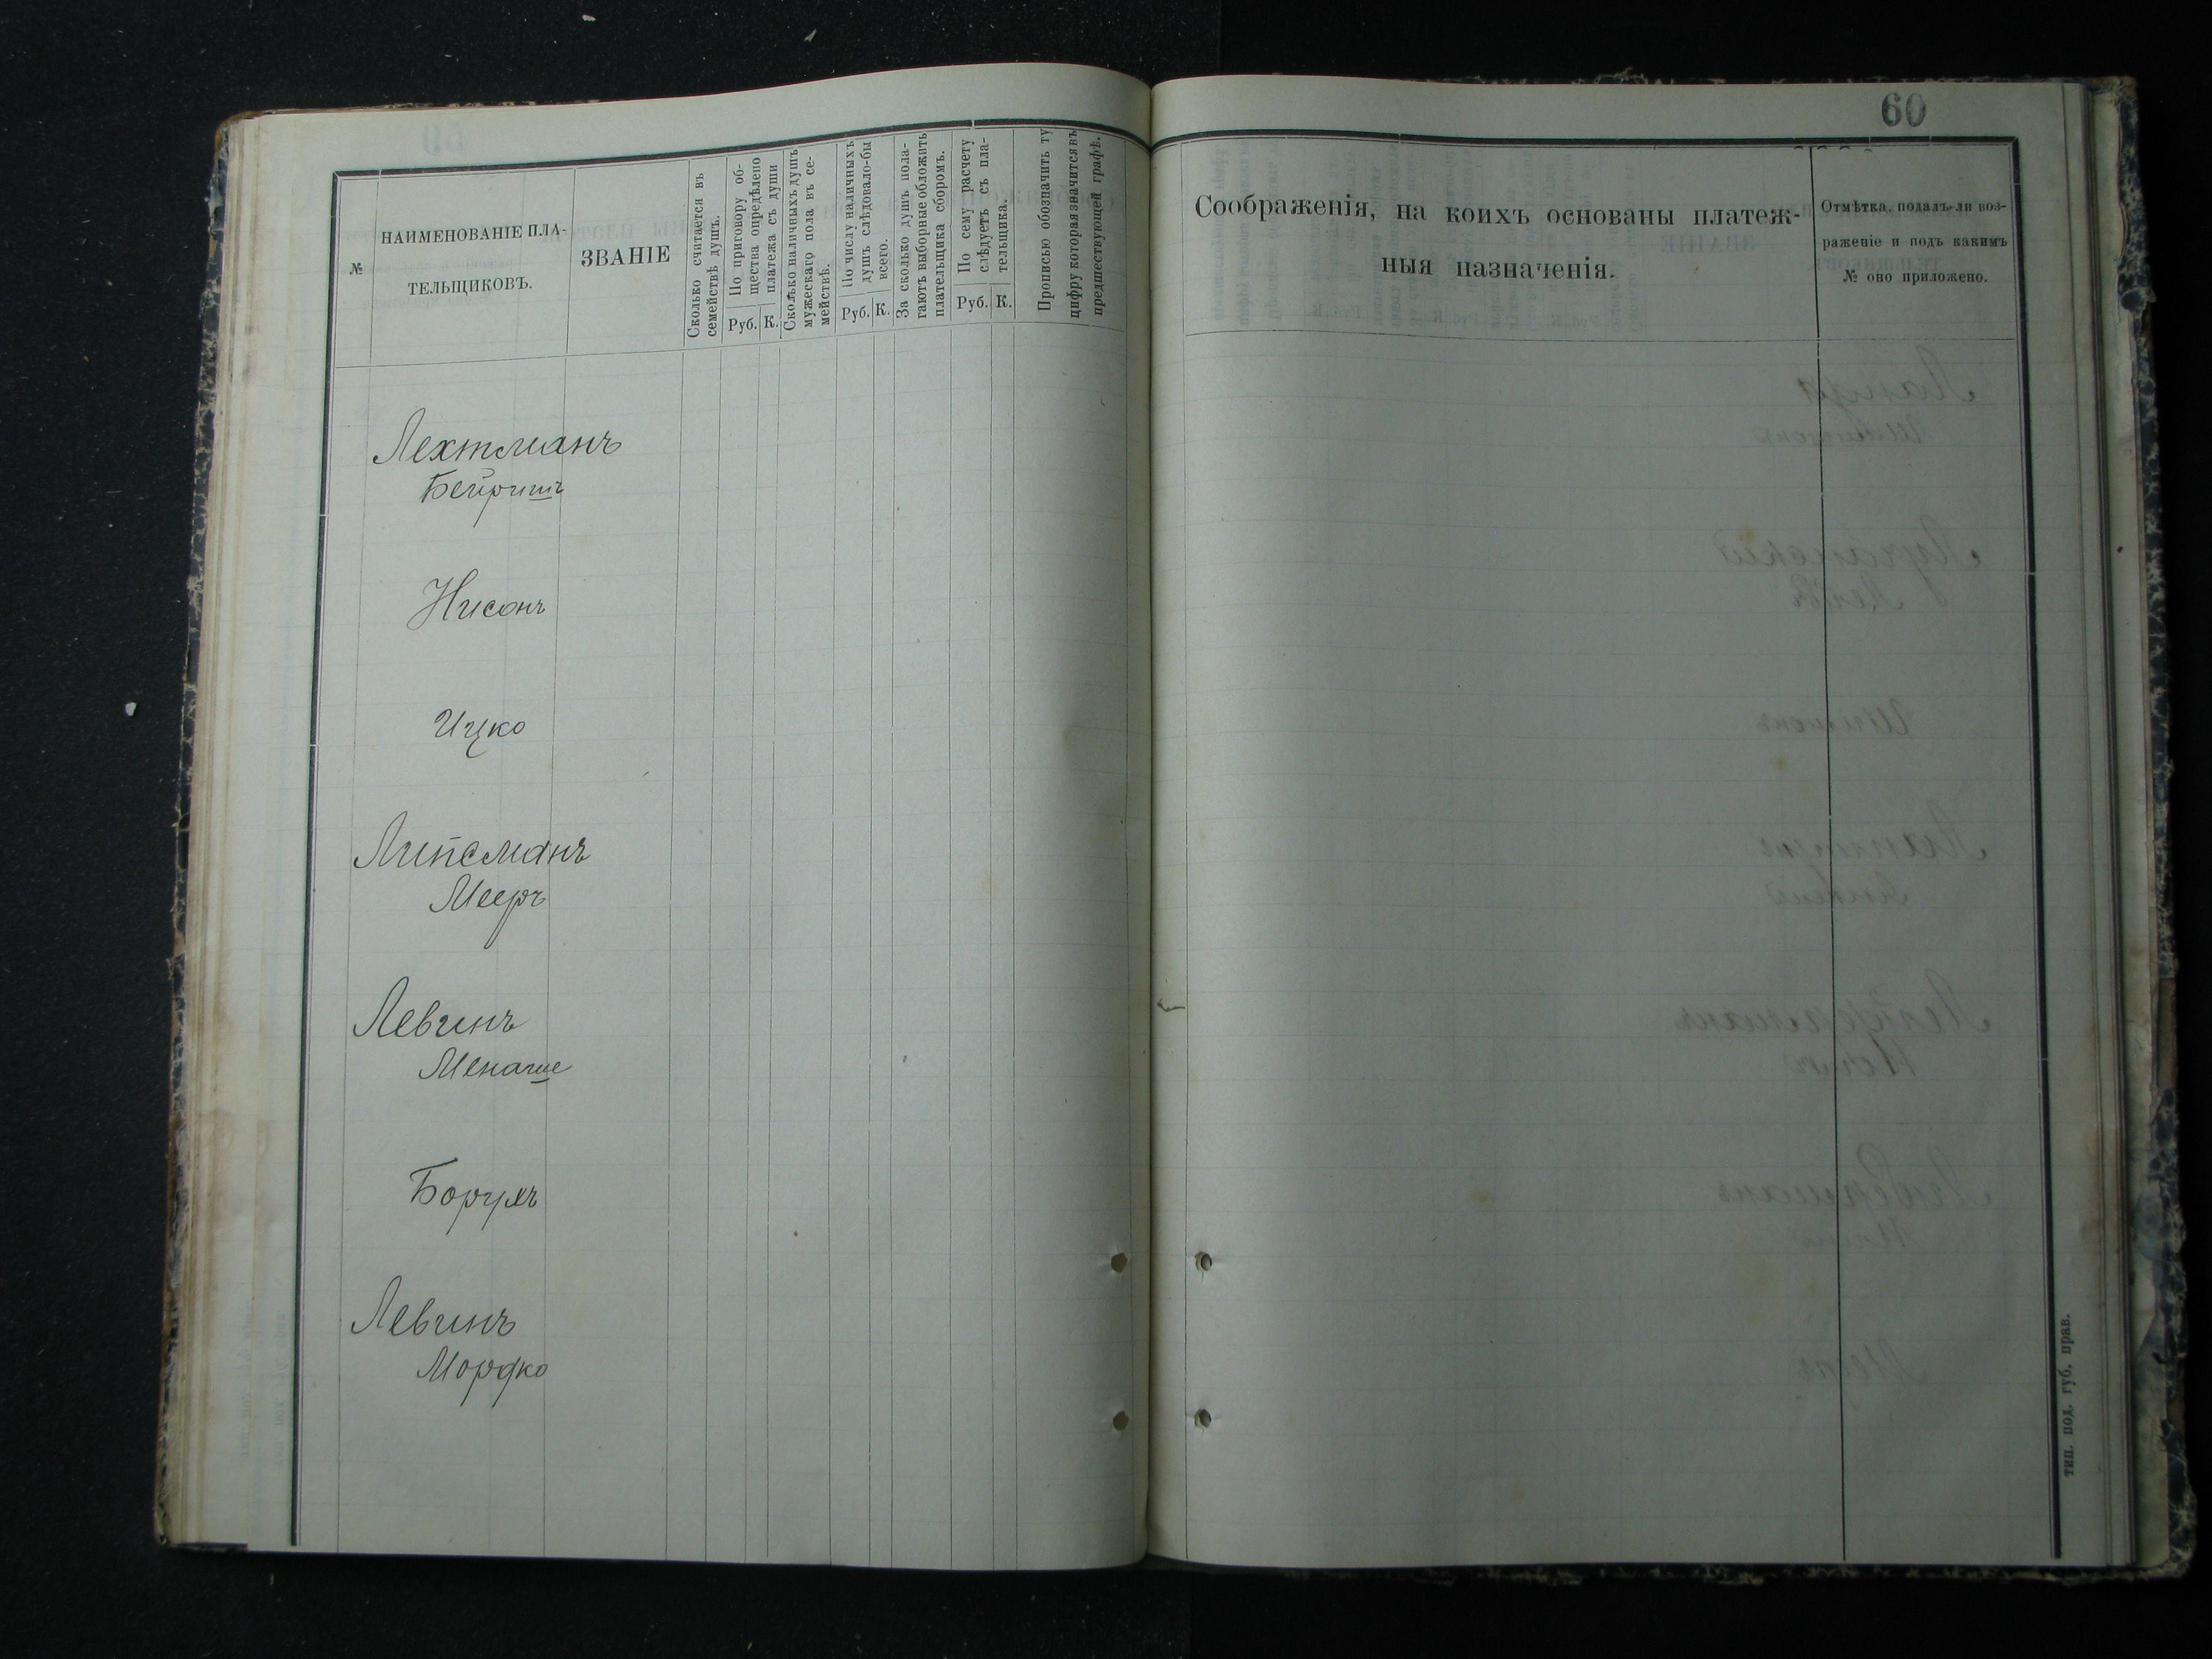 60
№
НАИМЕНОВАНІЕ ПЛА-
ТЕЛЬЩИКОВЪ.
ЗВАНІЕ
Сколько считается въ
семействѣ душъ.
По приговору об-
щества опредѣлено
платежа съ души
Руб. К.
Сколько наличныхъ душъ
мужескаго пола въ се-
мействѣ.
По числу наличныхъ
душъ слѣдовало-бы
всего.
Руб. К.
За сколько душъ пола-
гаютъ выборные обложить
плательщика сборомъ.
По сему расчету
слѣдуетъ съ пла-
тельщика.
Руб. К.
Прописью обозначить ту
цифру которая значится въ
предшествующей графѣ.
Соображенія, на коихъ основаны платеж-
ныя назначенія.
Отмѣтка, подалъ-ли воз-
раженіе и подъ какимъ
№ оно приложено.
Лехтманъ
Бейришъ
Нисонъ
Ицко
Липсманъ
Мееръ
Левинъ
Менаше
Борухъ
Левинъ
Мордко
тип. под. губ. прав.